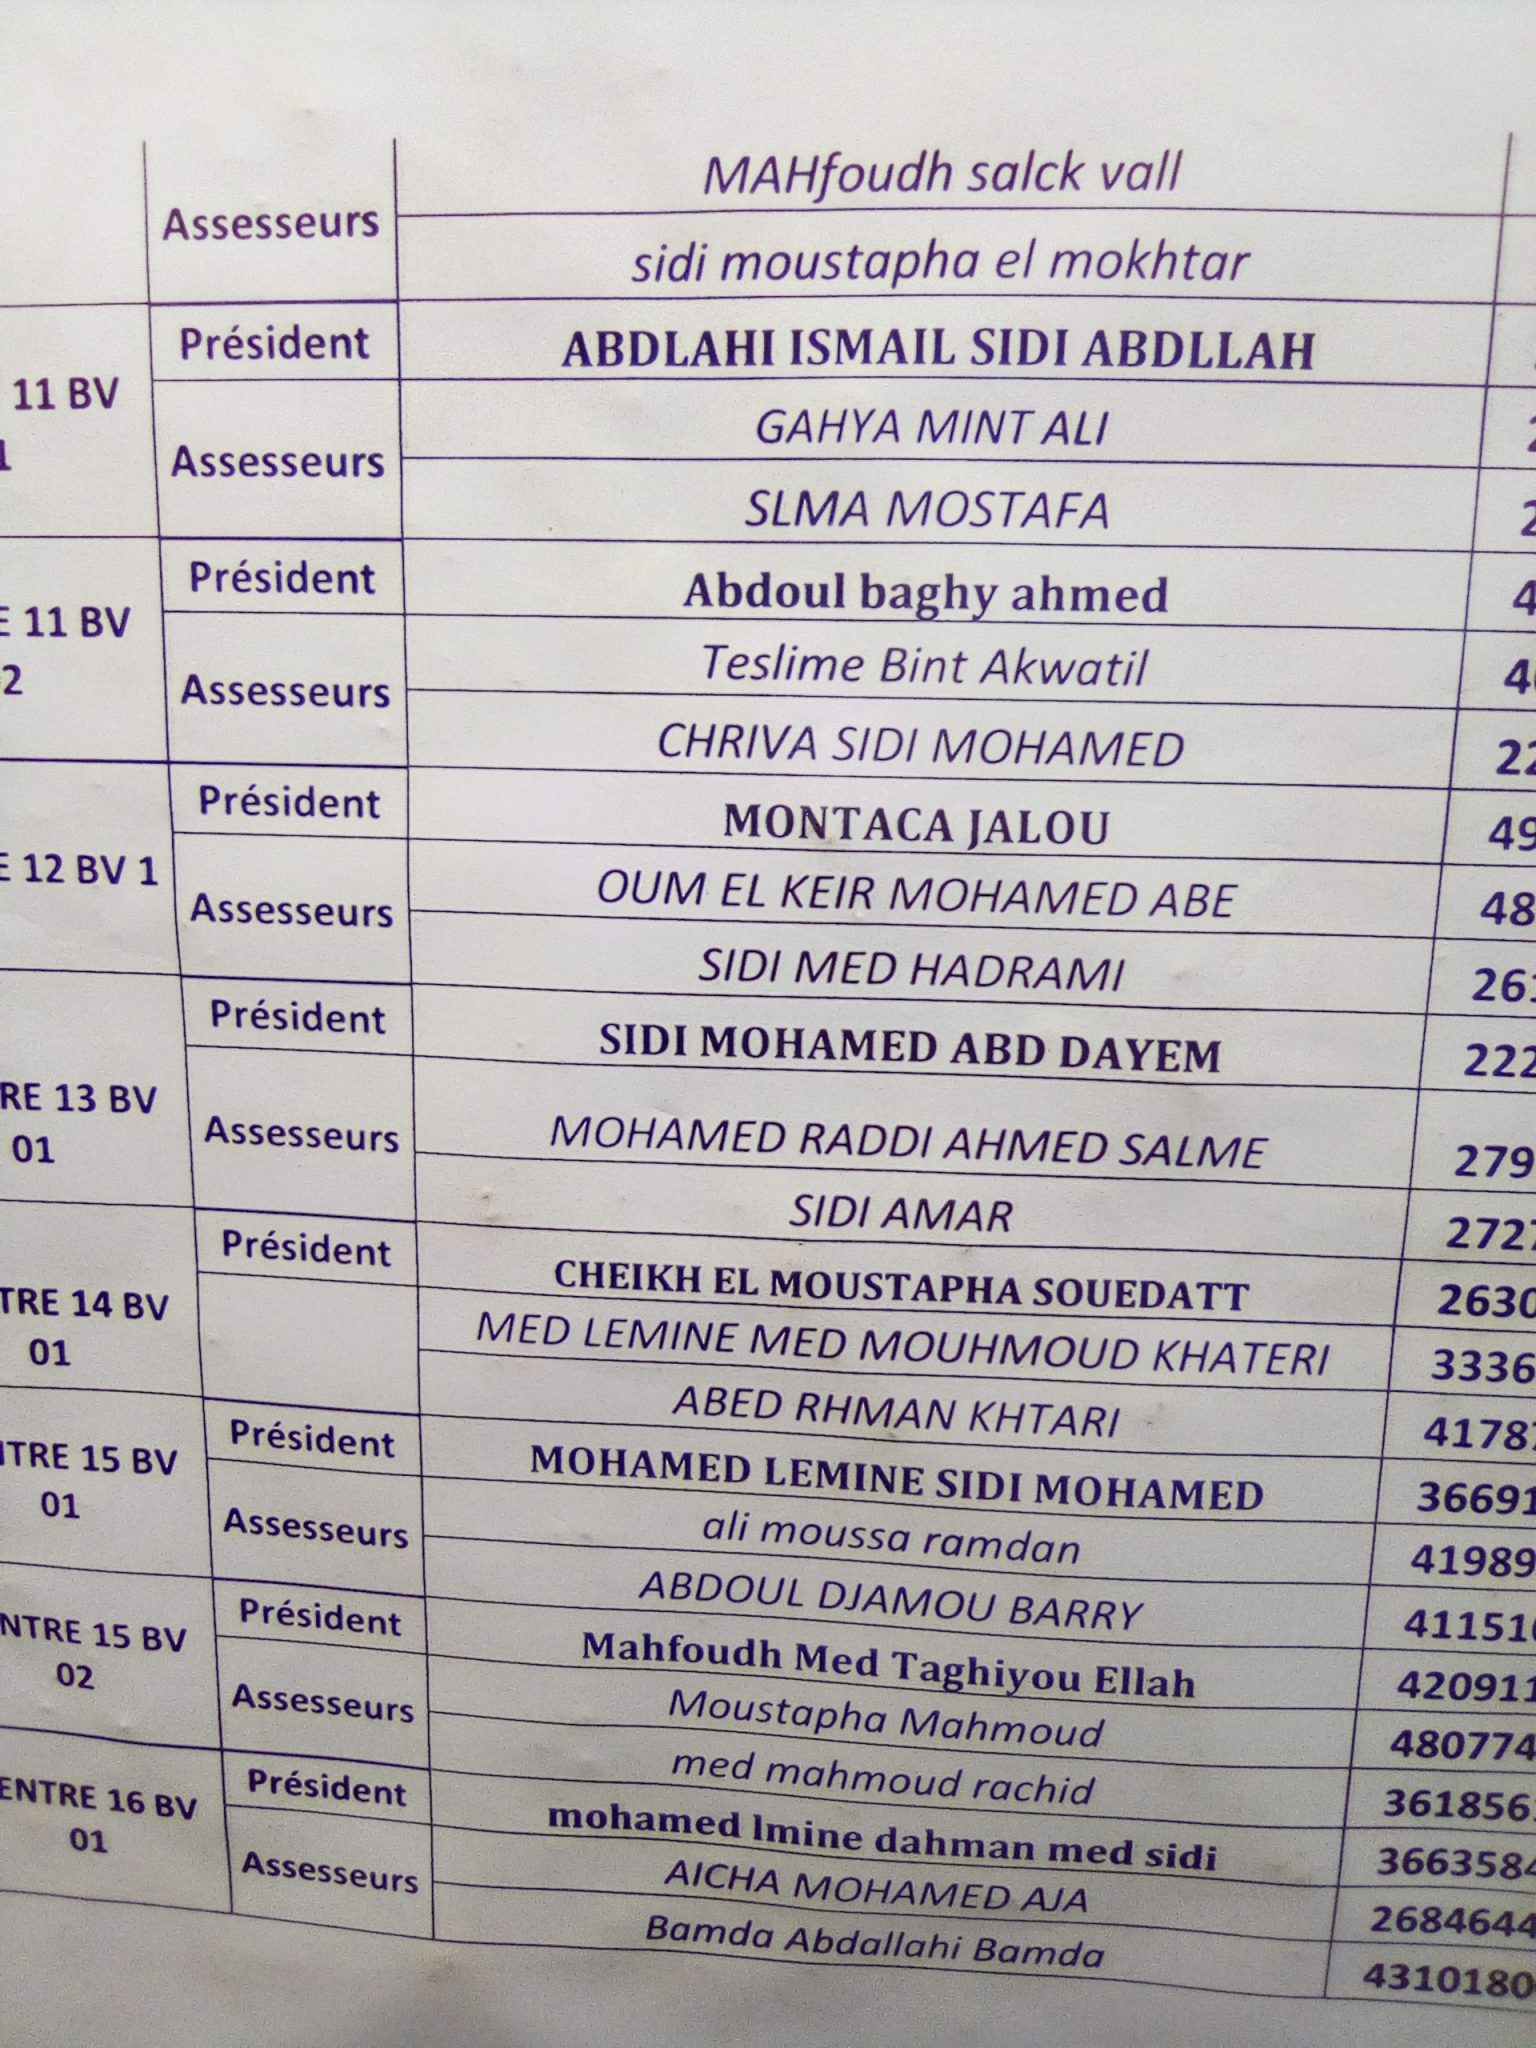 Assesseurs
MAHfoudh salck vall
sidi moustapha el mokhtar
11 BV
1
Président
ABDLAHI ISMAIL SIDI ABDLLAH
Assesseurs
GAHYA MINT ALI
2
SLMA MOSTAFA
2
E 11 BV
02
Président
Abdoul baghy ahmed
4
Assesseurs
Teslime Bint Akwatil
40
CHRIVA SIDI MOHAMED
22
E 12 BV 1
Président
MONTACA JALOU
49
Assesseurs
OUM EL KEIR MOHAMED ABE
48
SIDI MED HADRAMI
261
RE 13 BV
01
Président
SIDI MOHAMED ABD DAYEM
222
Assesseurs
MOHAMED RADDI AHMED SALME
279
SIDI AMAR
2727
TRE 14 BV
01
Président
CHEIKH EL MOUSTAPHA SOUEDATT
2630
MED LEMINE MED MOUHMOUD KHATERI
3336
ABED RHMAN KHTARI
41787
NTRE 15 BV
01
Président
MOHAMED LEMINE SIDI MOHAMED
36691
Assesseurs
ali moussa ramdan
41989
ABDOUL DJAMOU BARRY
411510
NTRE 15 BV
02
Président
Mahfoudh Med Taghiyou Ellah
420911
Assesseurs
Moustapha Mahmoud
480774
med mahmoud rachid
361856
ENTRE 16 BV
01
Président
mohamed lmine dahman med sidi
3663584
Assesseurs
AICHA MOHAMED AJA
2684644
Bamda Abdallahi Bamda
4310180